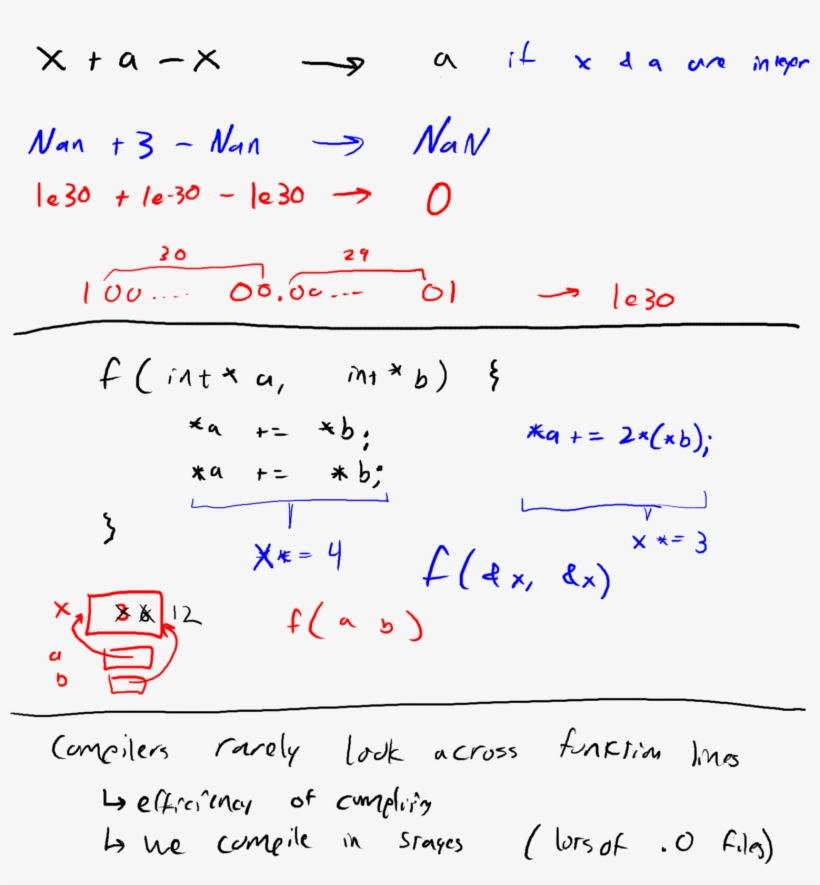 x + a - x → a if x & a are integer
Nan + 3 - Nan → NaN
1e30 + 1e-30 - 1e30 → 0
30 29
1 00.... 00.00... 01 → 1e30
f(int* a, int* b) {
*a += *b; *a += 2*(*b);
*a += *b;
}
x *= 4 x *= 3
f(&x, &x)
x 12
f(a b)
a
b
Compilers rarely look across function lines
↳ efficiency of compiling
↳ we compile in stages (lots of .o files)